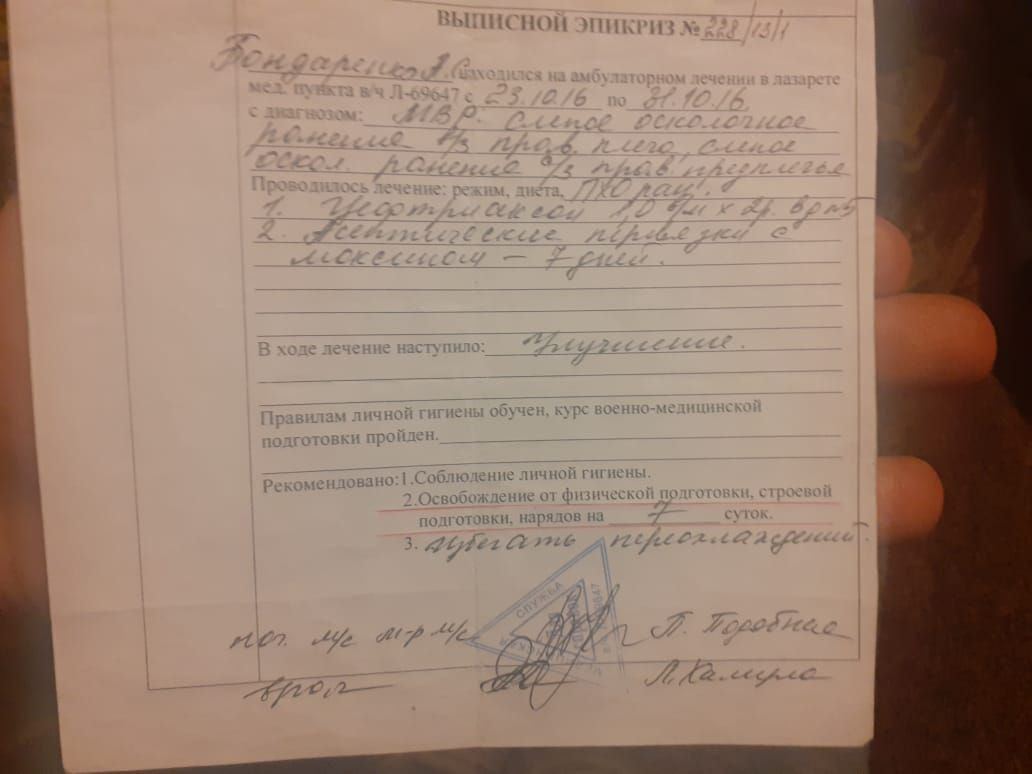 ВЫПИСНОЙ ЭПИКРИЗ № 228/13/1
Бондаренко А. С. находился на амбулаторном лечении в лазарете
мед. пункта в/ч Л-69647 с 23.10.16 по 31.10.16,
с диагнозом: МВР. слепое осколочное
ранение в/з прав. плеча, слепое
оскол. ранение с/з прав. предплечья
Проводилось лечение: режим, диета, ПХО ран.
1. Цефтриаксон 1,0 в/м х 2р. в д
2. Асептические перевязки с
моксином – 7 дней.
В ходе лечение наступило: Улучшение.
Правилам личной гигиены обучен, курс военно-медицинской
подготовки пройден.
Рекомендовано: 1.Соблюдение личной гигиены.
2.Освобождение от физической подготовки, строевой
подготовки, нарядов на 7 суток.
3. избегать переохлаждений.
СЛУЖБА
69647
нач. м/с м-р м/с П.
врач Л.